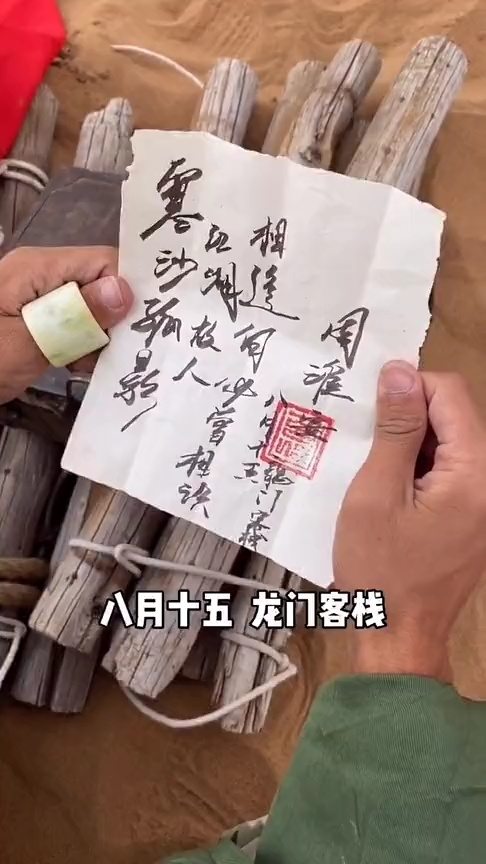 寒沙孤影
江湖故人
相逢何必曾相识
周淮安
八月十五龙门客栈
八月十五 龙门客栈